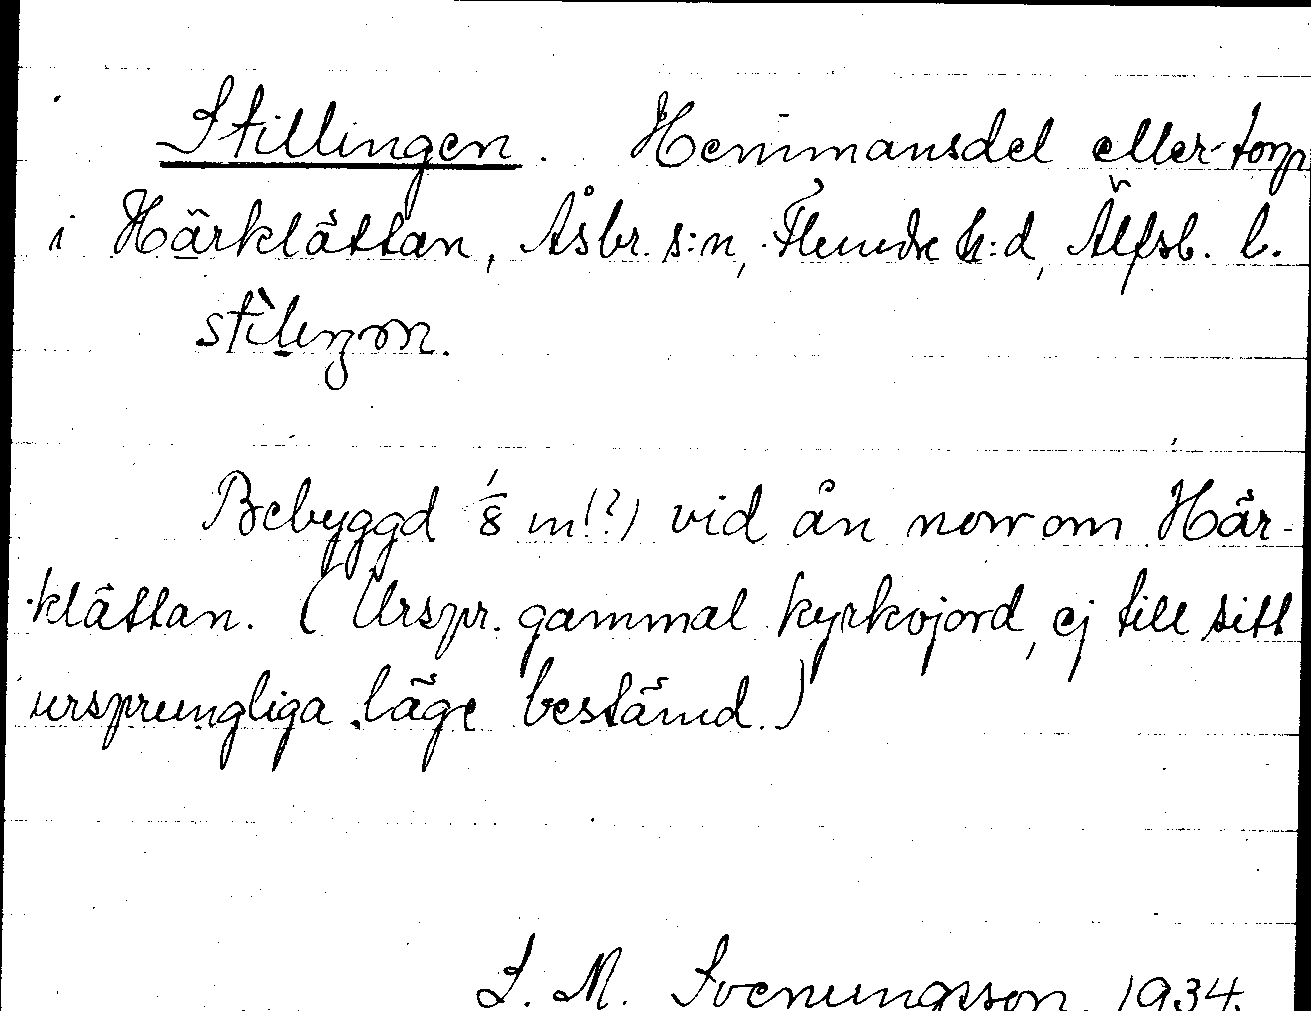 Stillingen. Hemmansdel eller torp
i Härklättan, Åsbr. s:n, Flundre h:d, Älfsb. l.
Bebyggd 1/8 m(?) vid ån norr om Här-
klättan. (Urspr. gammal kyrkojord, ej till sitt
ursprungliga läge bestämd.)
S. M. Svenungsson. 1934.